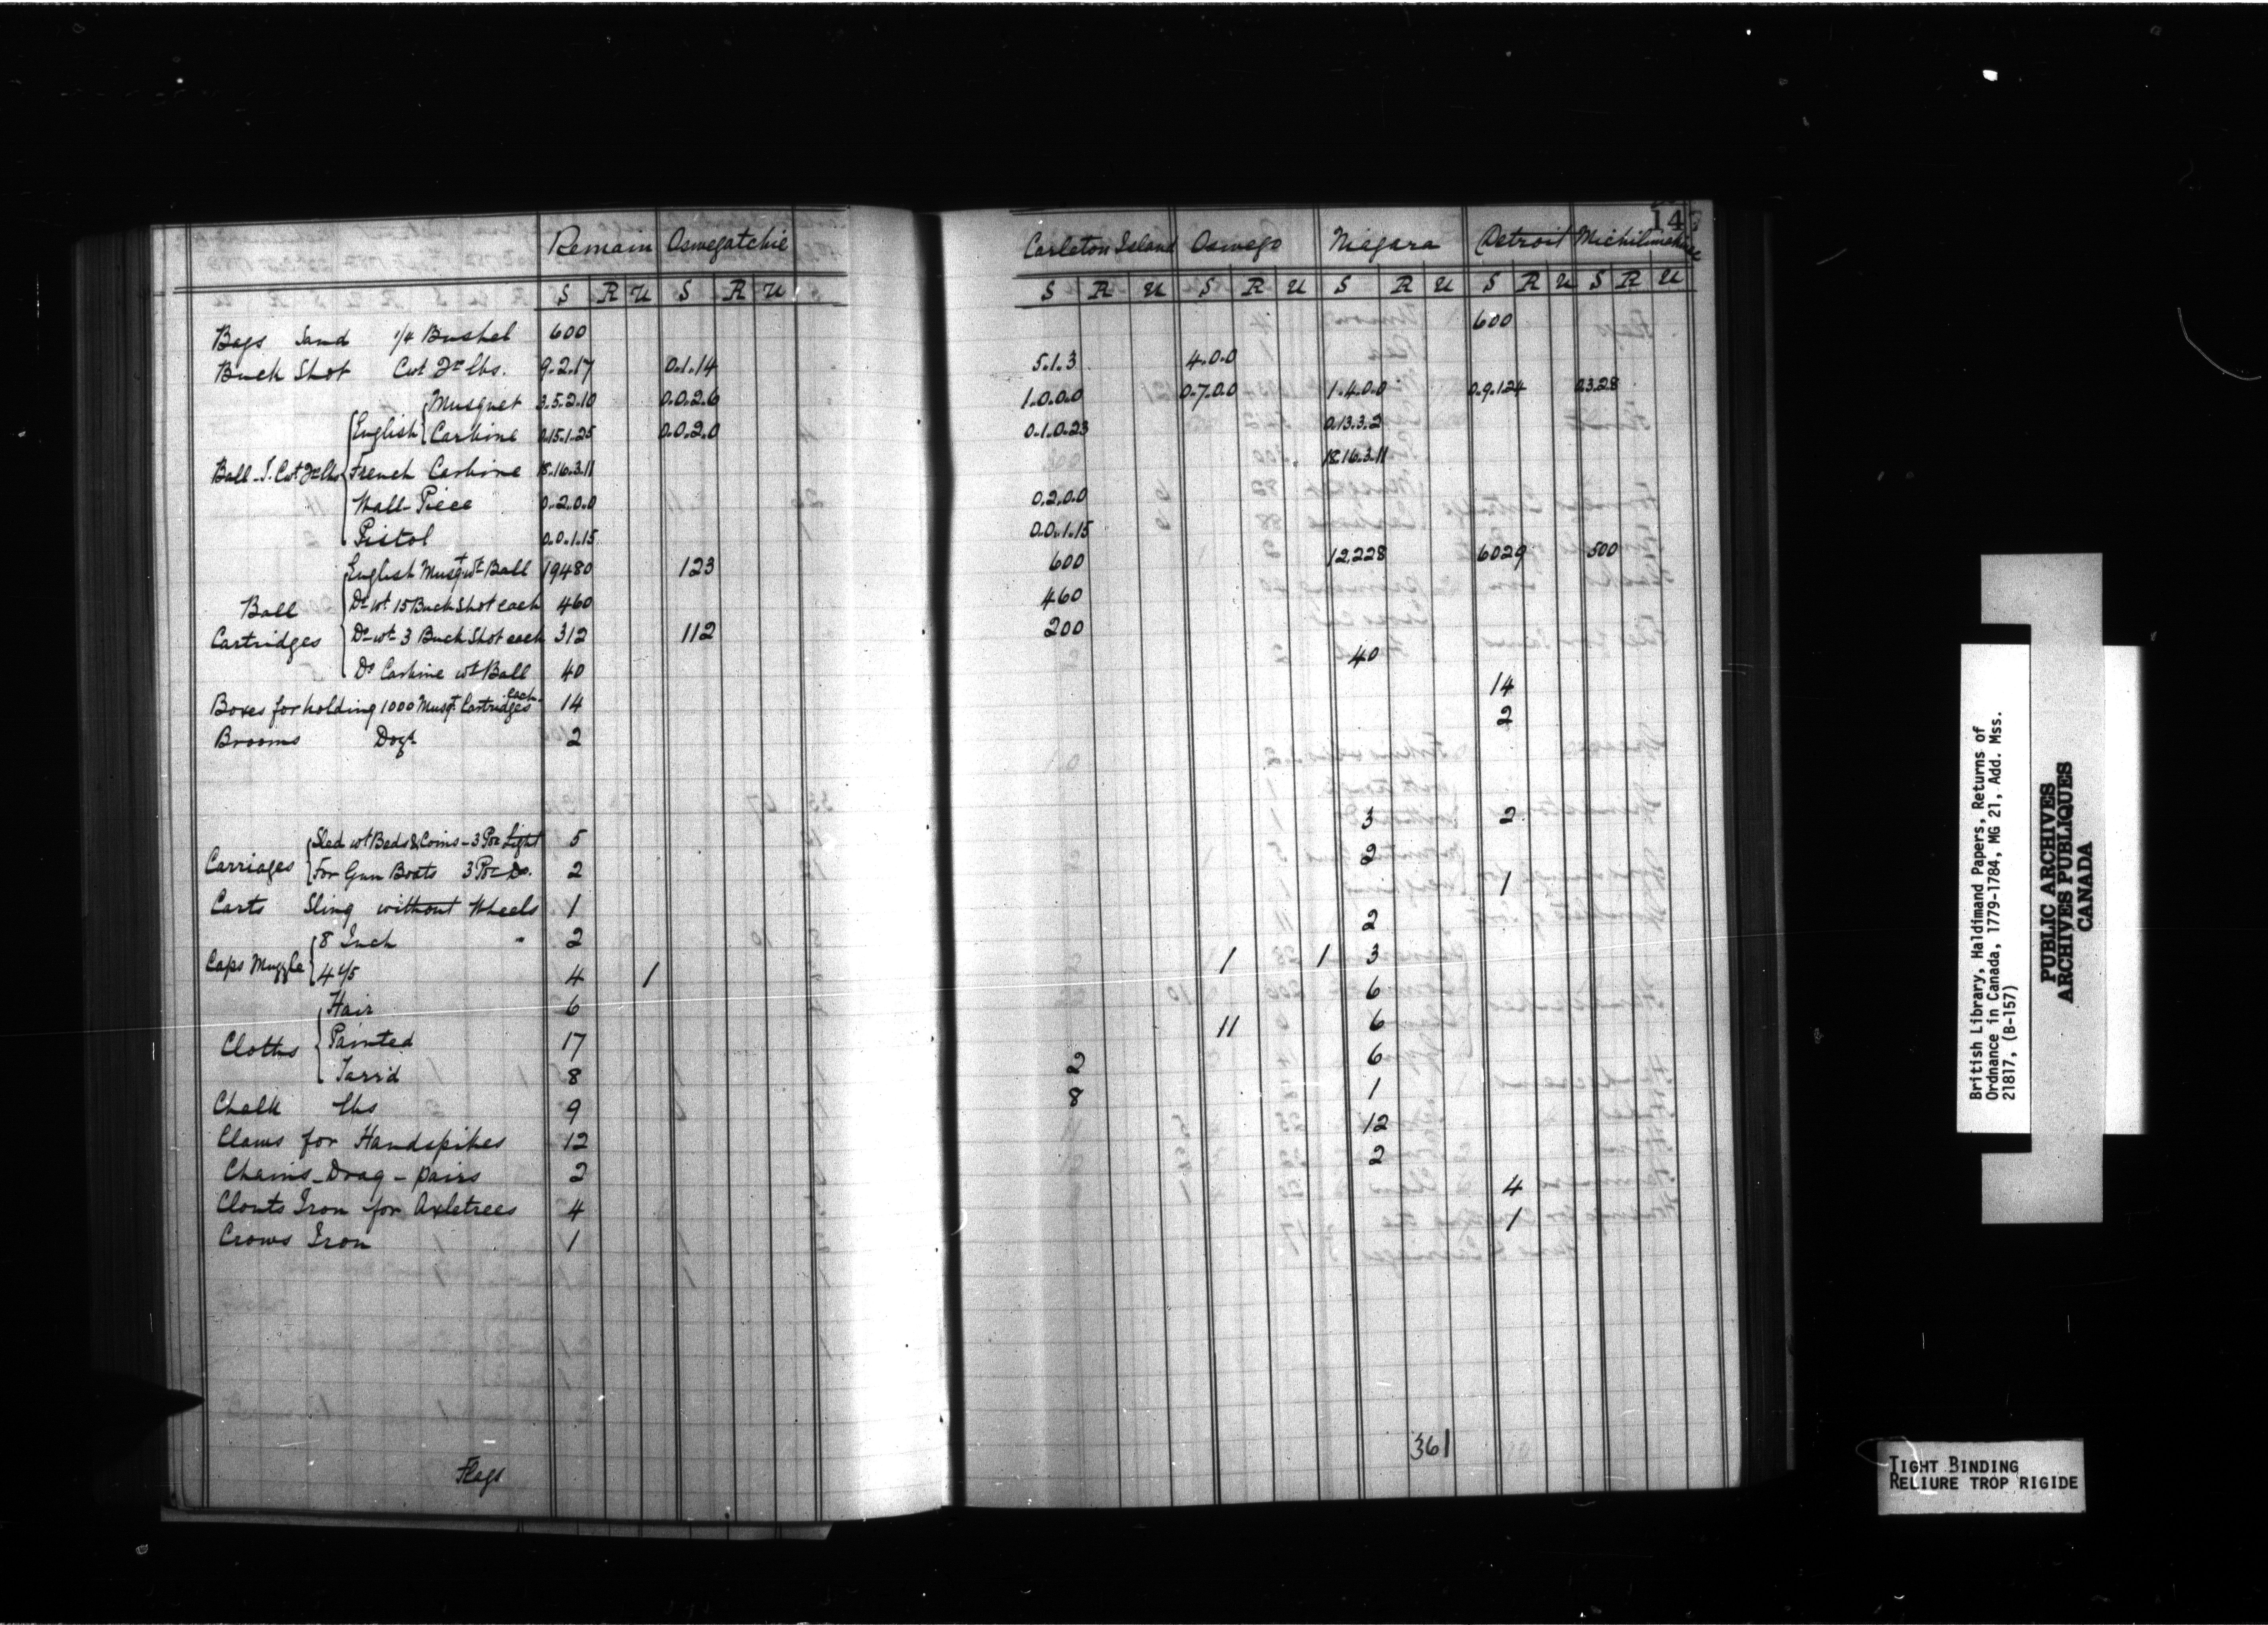 Remain Oswegatchie
S R U S R U
Bags Sand 1/4 Bushel 600
Buck Shot Cwt Qr lbs. 9.2.17 0.1.14
Musquet 3.5.2.10 0.0.2.6
English Carbine 0.15.1.25 0.0.2.0
Ball - T. Cwt Qr lbs French Carbine 18.16.3.11
Wall-Piece 0.2.0.0
Pistol 0.0.1.15
English Musqt wt Ball 19480 123
Ball Do wt 15 Buck Shot each 460
Cartridges Do wt 3 Buck Shot each 312 112
Do Carbine wt Ball 40
Boxes for holding 1000 Musqt Cartridges each 14
Brooms Dozn 2
Sled wt Beds & Coins - 3 Por Light 5
Carriages For Gun Boats 3 Por Do. 2
Carts Sling without Wheels 1
8 Inch 2
Caps Muzzle 4 2/5 4 1
Hair 6
Cloths Painted 17
Tarr'd 8
Chalk lbs 9
Claws for Handspikes 12
Chains - Drag - pairs 2
Clouts Iron for Axletrees 4
Crows Iron 1
Flags
14
Carleton Island Oswego Niagara Detroit Michilimakinac
S R U S R U S R U S R U S R U
600
5.1.3 4.0.0
1.0.0.0 0.7.0.0 1.4.0.0 0.9.1.24 0.3.28
0.1.0.23 0.13.3.2
18.16.3.11
0.2.0.0
0.0.1.15
600 12,228 6029 500
460
200
40
14
2
3 2
2
1
2
1 1 3
6
11 6
2 6
8 1
12
2
4
1
361
British Library, Haldimand Papers, Returns of
Ordnance in Canada, 1779-1784, MG 21, Add. Mss.
21817, (B-157)
PUBLIC ARCHIVES
ARCHIVES PUBLIQUES
CANADA
TIGHT BINDING
RELIURE TROP RIGIDE